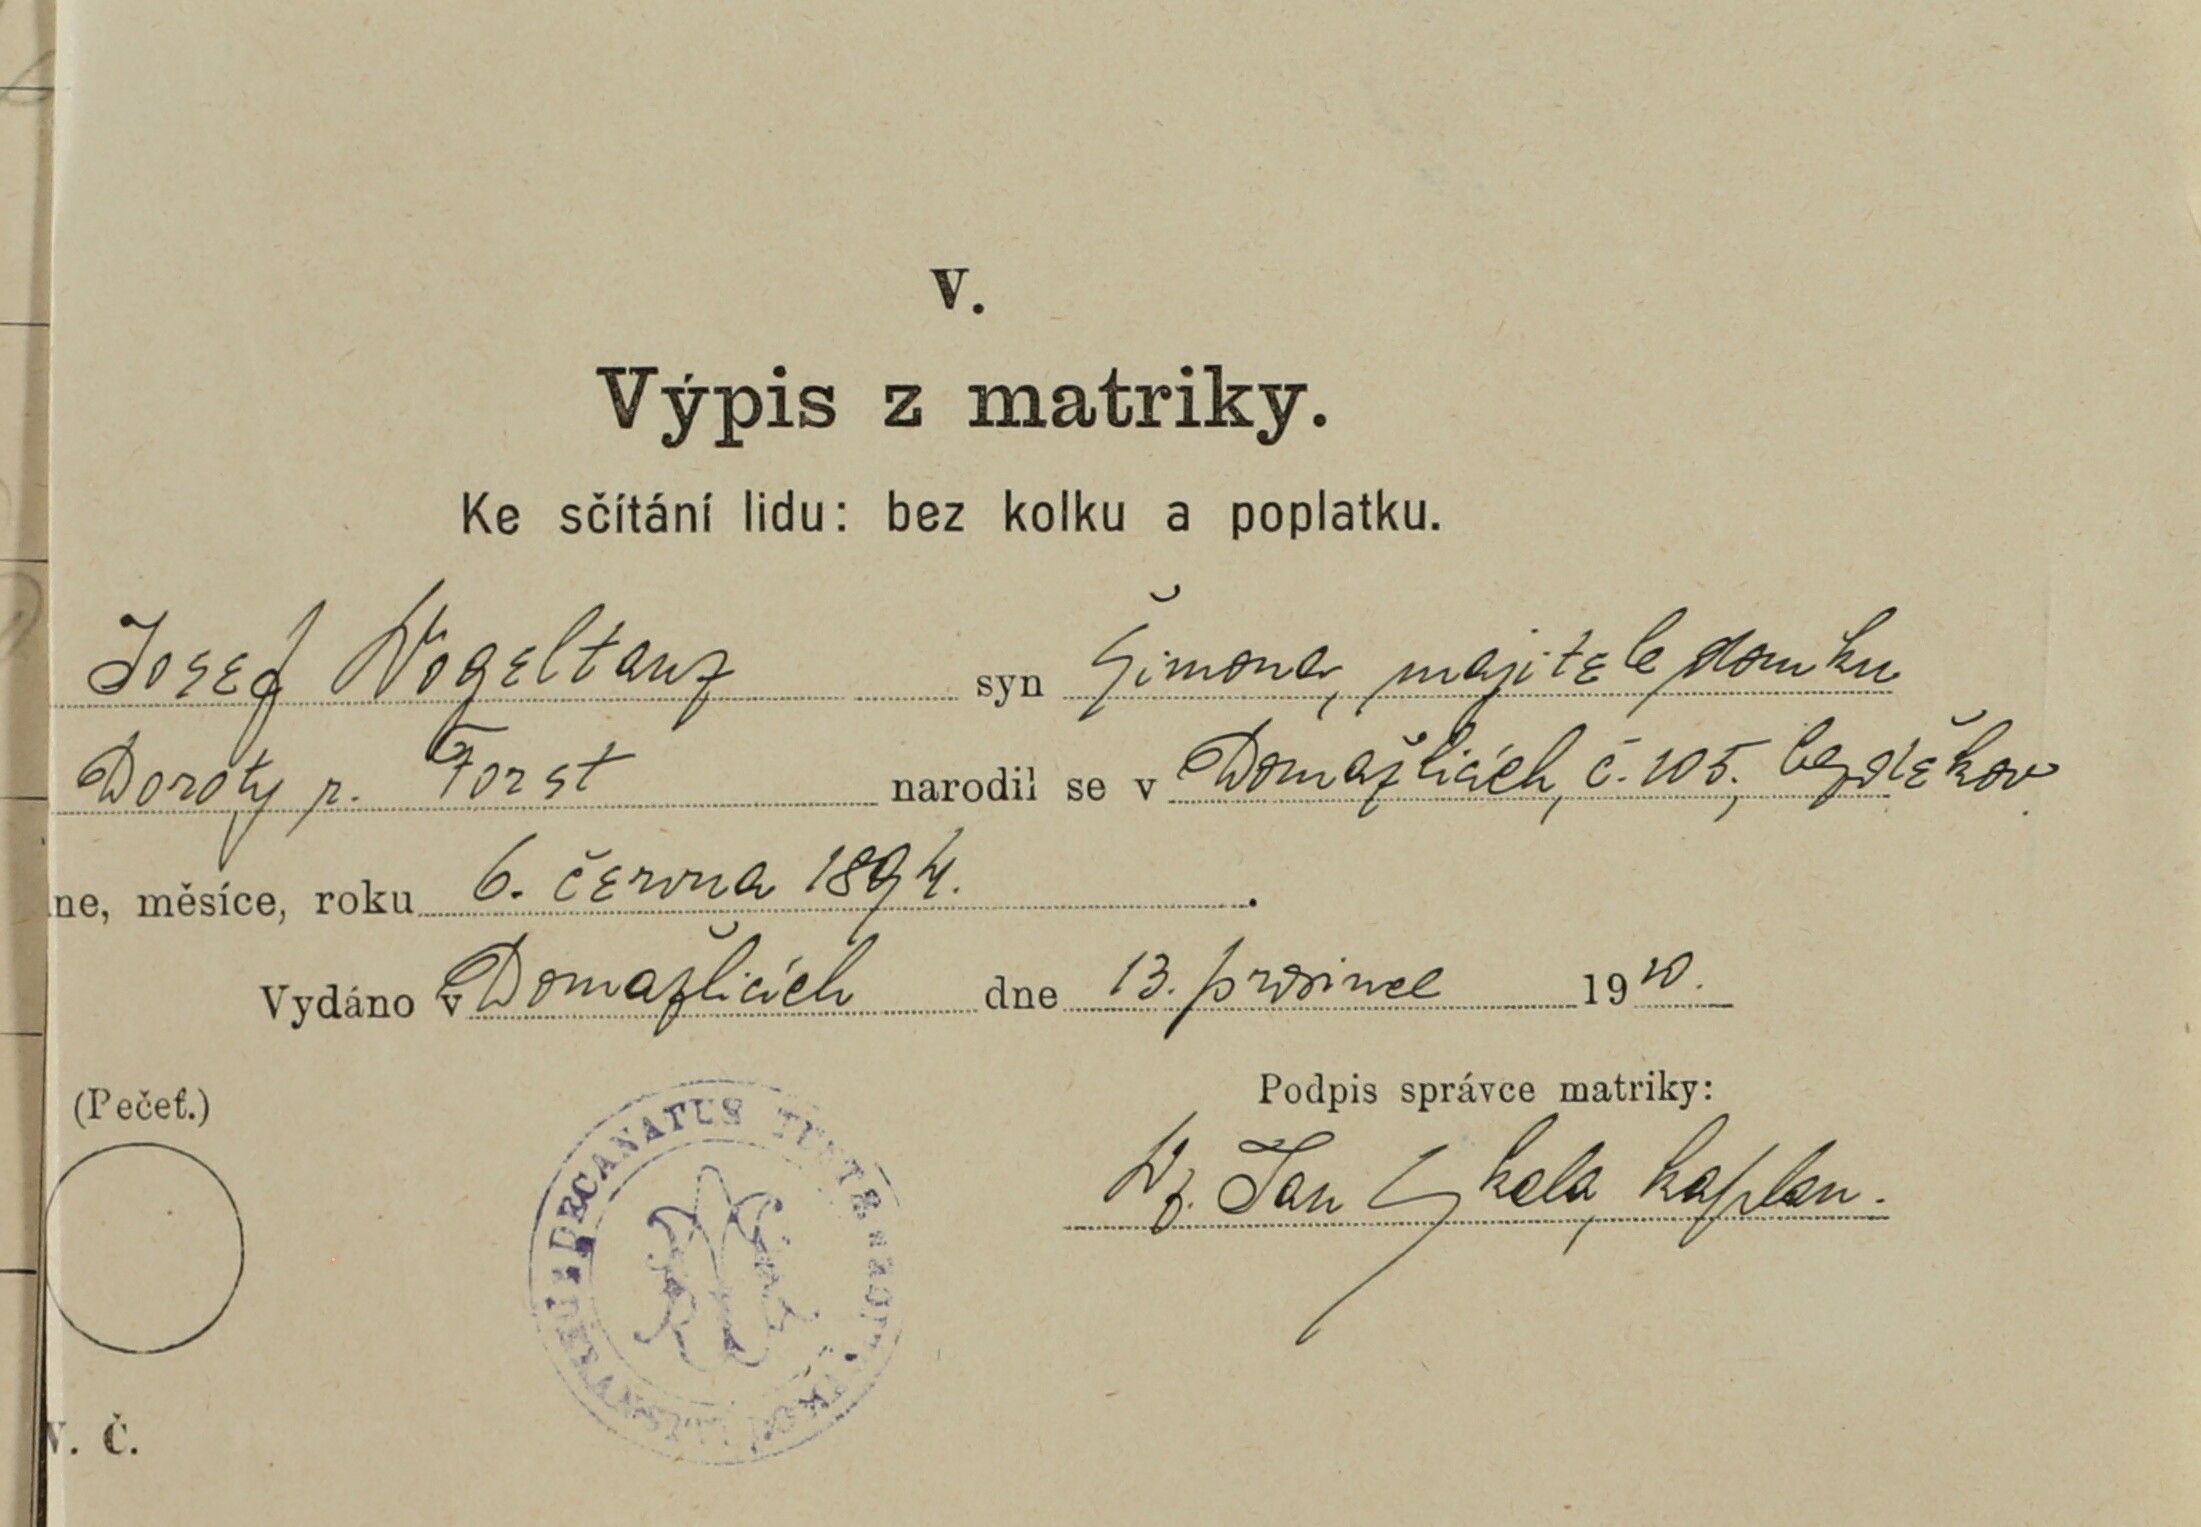 V.
Výpis z matriky.
Ke sčítání lidu: bez kolku a poplatku.
Josef Vogeltanz syn Šimona, majitele domku
Doroty r. Forst narodil se v Domažlicích, č. 105, bezděkov
ne, měsíce, roku 6. června 1894.
Vydáno v Domažlicích dne 13. prosince 1910.
(Pečeť.)
Podpis správce matriky:
Wz. Jan Skala, kaplan.
DECANATUS
V. Č.